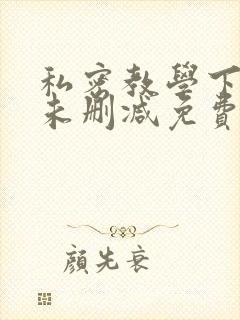 私密教學下
未刪減免費
顔先衰